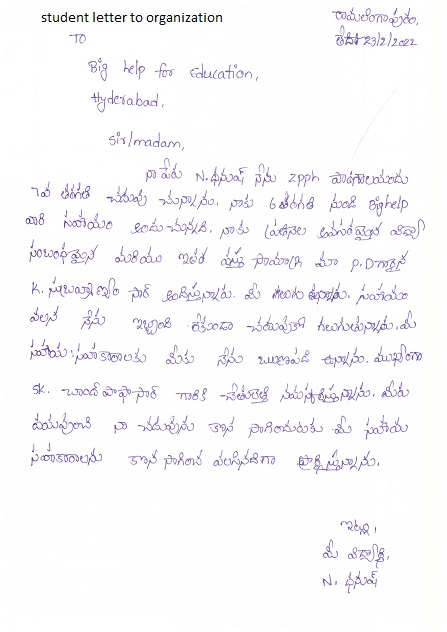 student letter to organization
రామలింగాపురం,
తేది: 23/2/2022
TO
Big help for Education,
Hyderabad,
Sir/madam,
నా పేరు N. ధనుష్ నేను zpph పాఠశాలయందు
7వ తరగతి చదువు చున్నాను. నాకు 6 తరగతి నుండి Bighelp
వారి సహాయం అందుచున్నది. నాకు ప్రతినెల అవసరమైన విద్యా
సంబంధమైన మరియు ఇతర వస్తు సామాగ్రి మా P.D గారైన
K. సుబ్రహ్మణ్యం సార్ అందిస్తున్నారు. మీ కలుగు ఉన్నాను. సహాయం
వలన నేను ఇబ్బంది లేకుండా చదువుకో గలుగుతున్నాను. మీ
సహాయ సహకారాలకు మీకు నేను ఋణపడి ఉన్నాను. ముఖ్యంగా
SK. చాంద్ పాషా సార్ గారికి చేతులెత్తి నమస్కరిస్తున్నాను. మీరు
దయవుంచి నా చదువును కొన సాగించుటకు మీ సహాయ
సహకారాలను కొన సాగించ వలసినదిగా ప్రార్థిస్తున్నాను.
ఇట్లు,
మీ విద్యార్థి,
N. ధనుష్